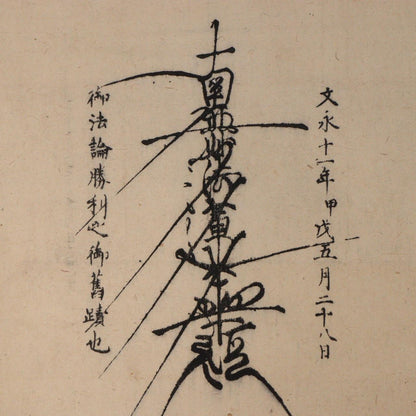 文永十一年甲戌五月二十八日
南無妙法蓮華経
御法論勝利之御舊蹟也